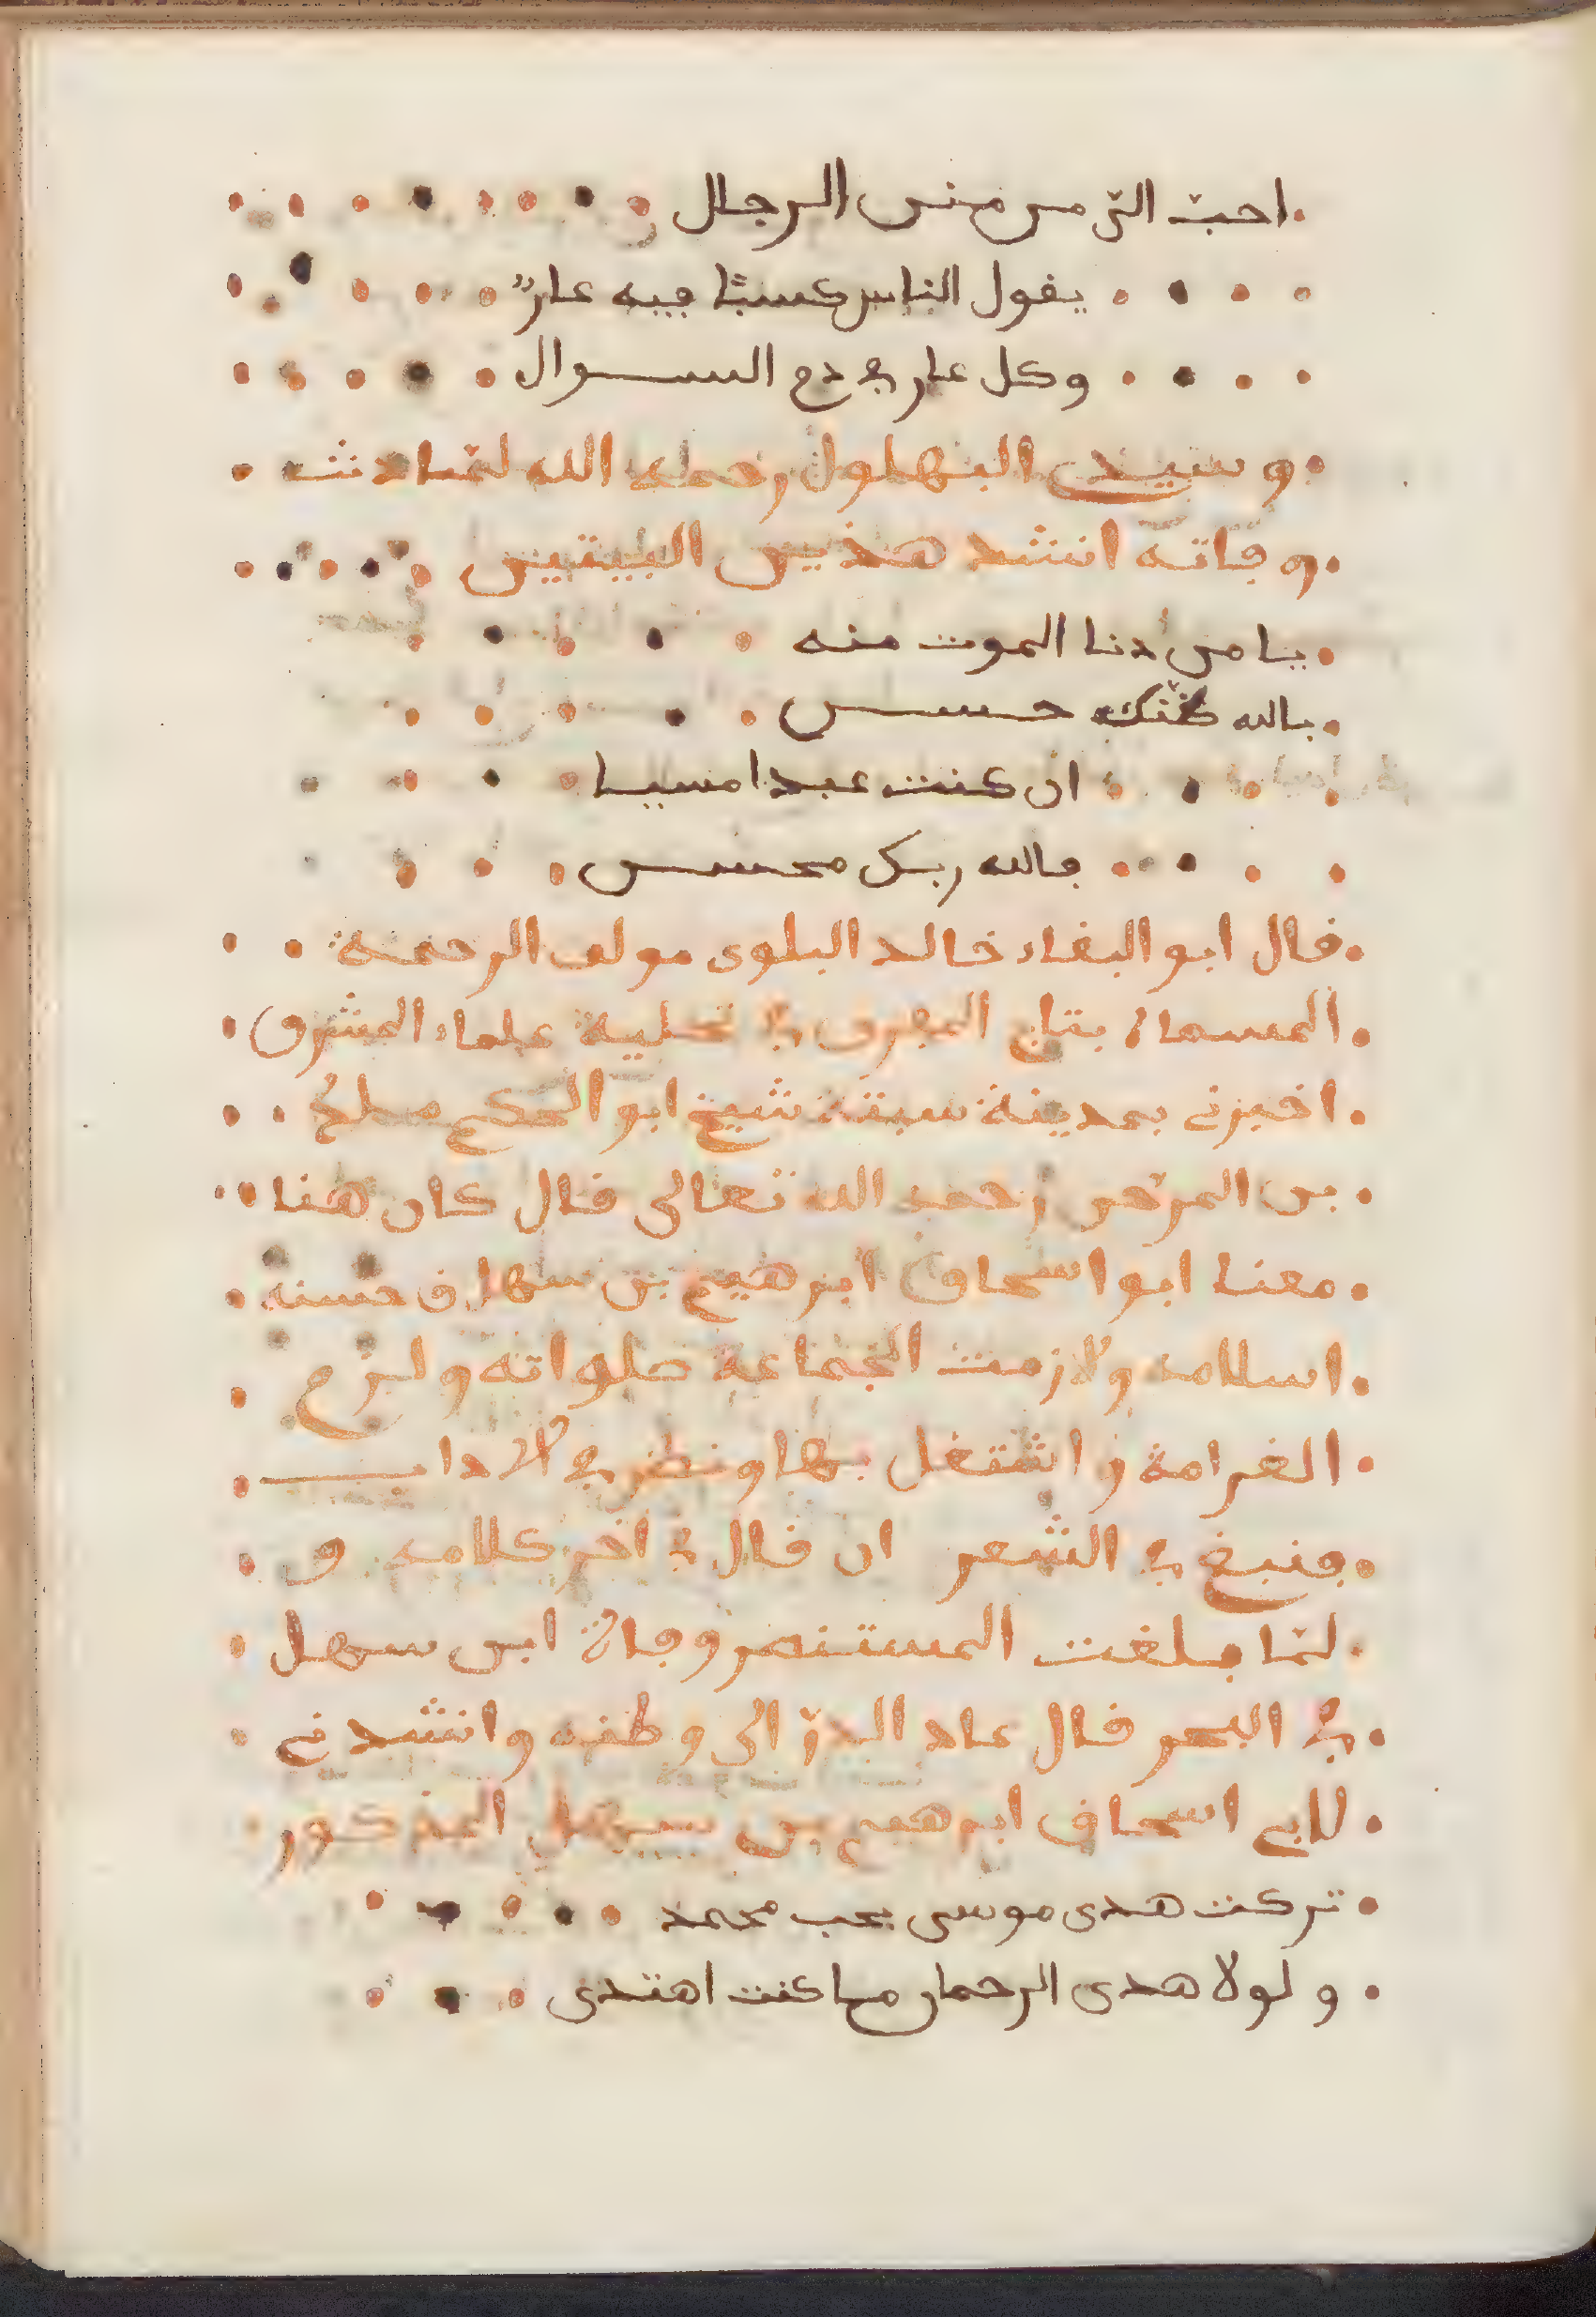 احبّ الىّ من منن الرجال
يقول الناس كسبًا فيه عارٌ
وكل عار في ذم السوال
وسيدى البهلول رحمه الله لمّا دنت
وفاته انشد هذين البيتين
يا من دنا الموت منه
بالله ظنّك حسن
ان كنت عبدا مسيا
فالله ربك محسن
قال ابو البقاء خالد البلوى مولف الرحمة
المسماة بتاج المفرق في تحلية علماء المشرق
اخبرنى بمدينة سبتة شيخ ابو الحكم ملك
بن المرحر رحمه الله تعالى قال كان هنا
معنا ابو اسحاق ابرهيم بن سهل حسنه
اسلامه ولازمت الجماعة صلواته ولزم
الغرامة و اشتغل بها ونظر في الاداب
فنبغ في الشعر ان قال في اخر كلامه و
لمّا بلغت المستنصر وفاة ابن سهل
في البحر قال عاد الدرّ الى وطنه وانشدنى
لابى اسحاق ابرهيم بن سهل المذكور
تركت هدى موسى بحب محمد
ولولا هدى الرحمان ما كنت اهتدى